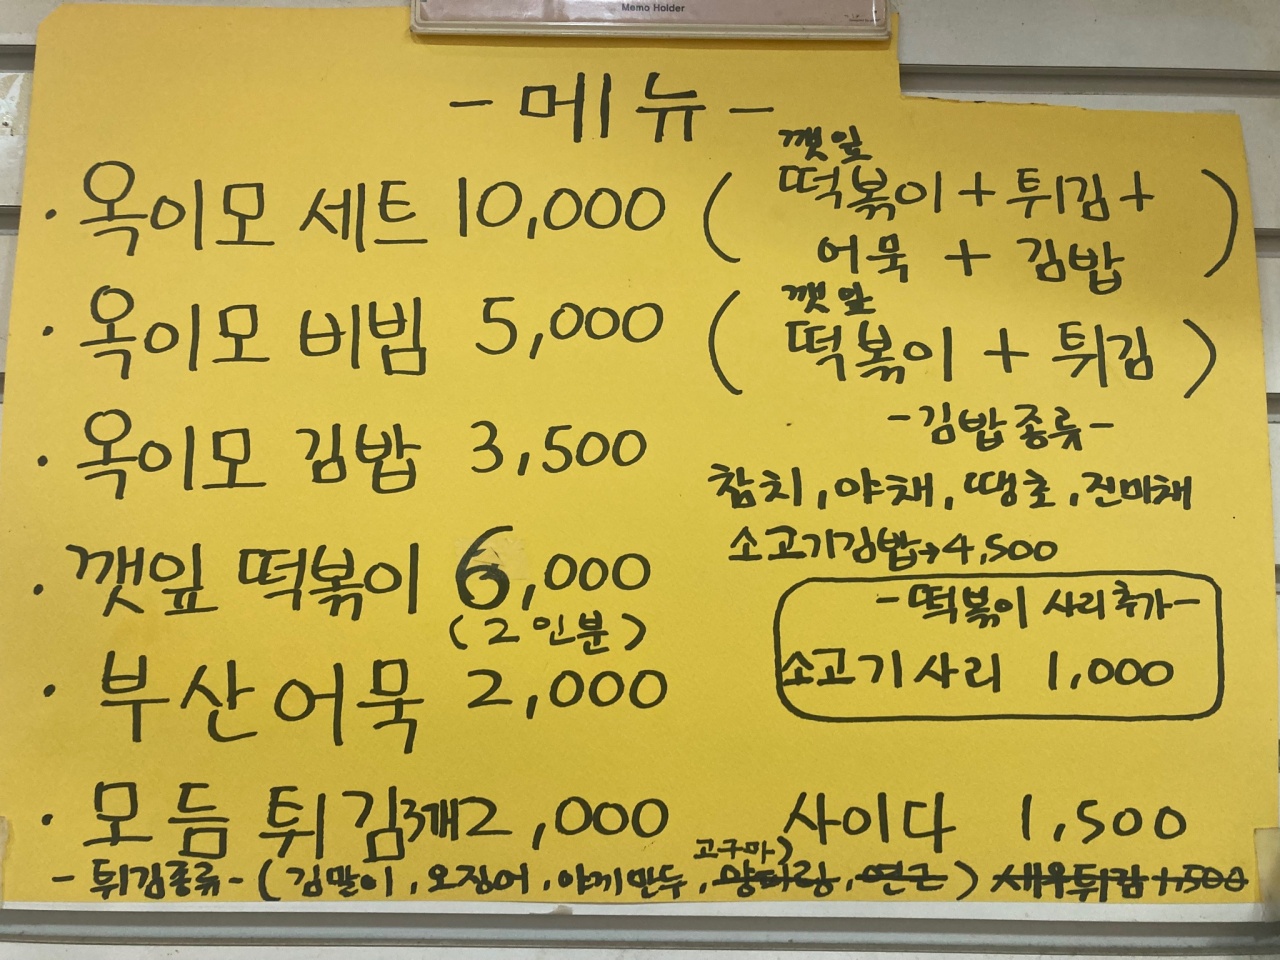 Memo Holder
- 메뉴 -
· 옥이모 세트 10,000 (깻잎 떡볶이 + 튀김 +
어묵 + 김밥)
· 옥이모 비빔 5,000 (깻잎 떡볶이 + 튀김)
· 옥이모 김밥 3,500
- 김밥종류 -
참치, 야채, 땡초, 진미채
소고기김밥→4,500
· 깻잎 떡볶이 6,000
(2인분)
- 떡볶이 사리추가 -
소고기사리 1,000
· 부산어묵 2,000
· 모듬 튀김3개2,000
사이다 1,500
고구마)
- 튀김종류 - (김말이, 오징어, 야끼만두, 양파링, 연근) 새우튀김+,500